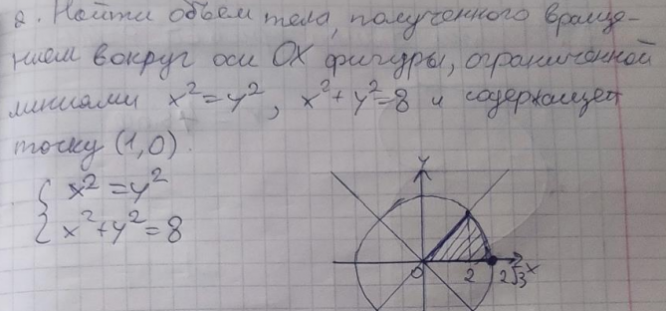 2. Найти объем тела, полученного враще-
нием вокруг оси OX фигуры, ограниченной
линиями x² = y², x² + y² = 8 и содержащей
точку (1,0).
{ x² = y²
{ x² + y² = 8
y
0 2 2√3 x